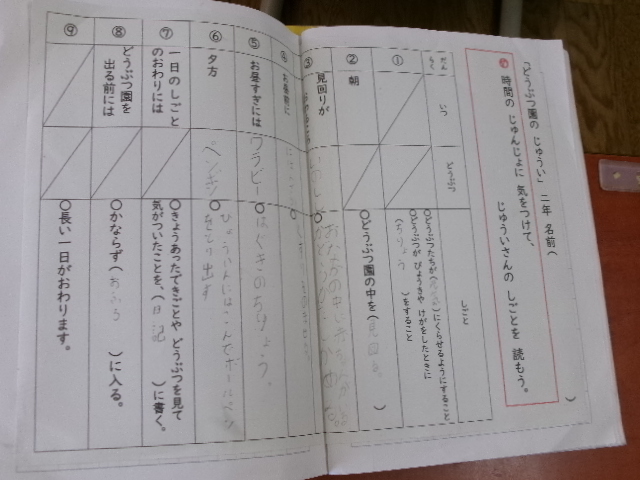 「どうぶつ園の じゅうい」 二年 名前( )
め 時間の じゅんじょに 気をつけて、
じゅういさんの しごとを 読もう。
だんらく
いつ
どうぶつ
しごと
①
○どうぶつたちが( )にくらせるようにすること
○どうぶつが びょうきや けがをしたときに
(ちりょう )をすること
②
朝
○どうぶつ園の中を(見回る )
③
見回りが
④
お昼前に
⑤
お昼すぎには
ワラビー
○はぐきのちりょう。
⑥
夕方
ペンギン
びょういんにはこんでボールペン
⑦
一日のしごと
のおわりには
○きょうあったできごとや どうぶつを見て
気がついたことを、(日記 )に書く。
⑧
どうぶつ園を
出る前には
○かならず(おふろ )に入る。
⑨
○長い一日がおわります。